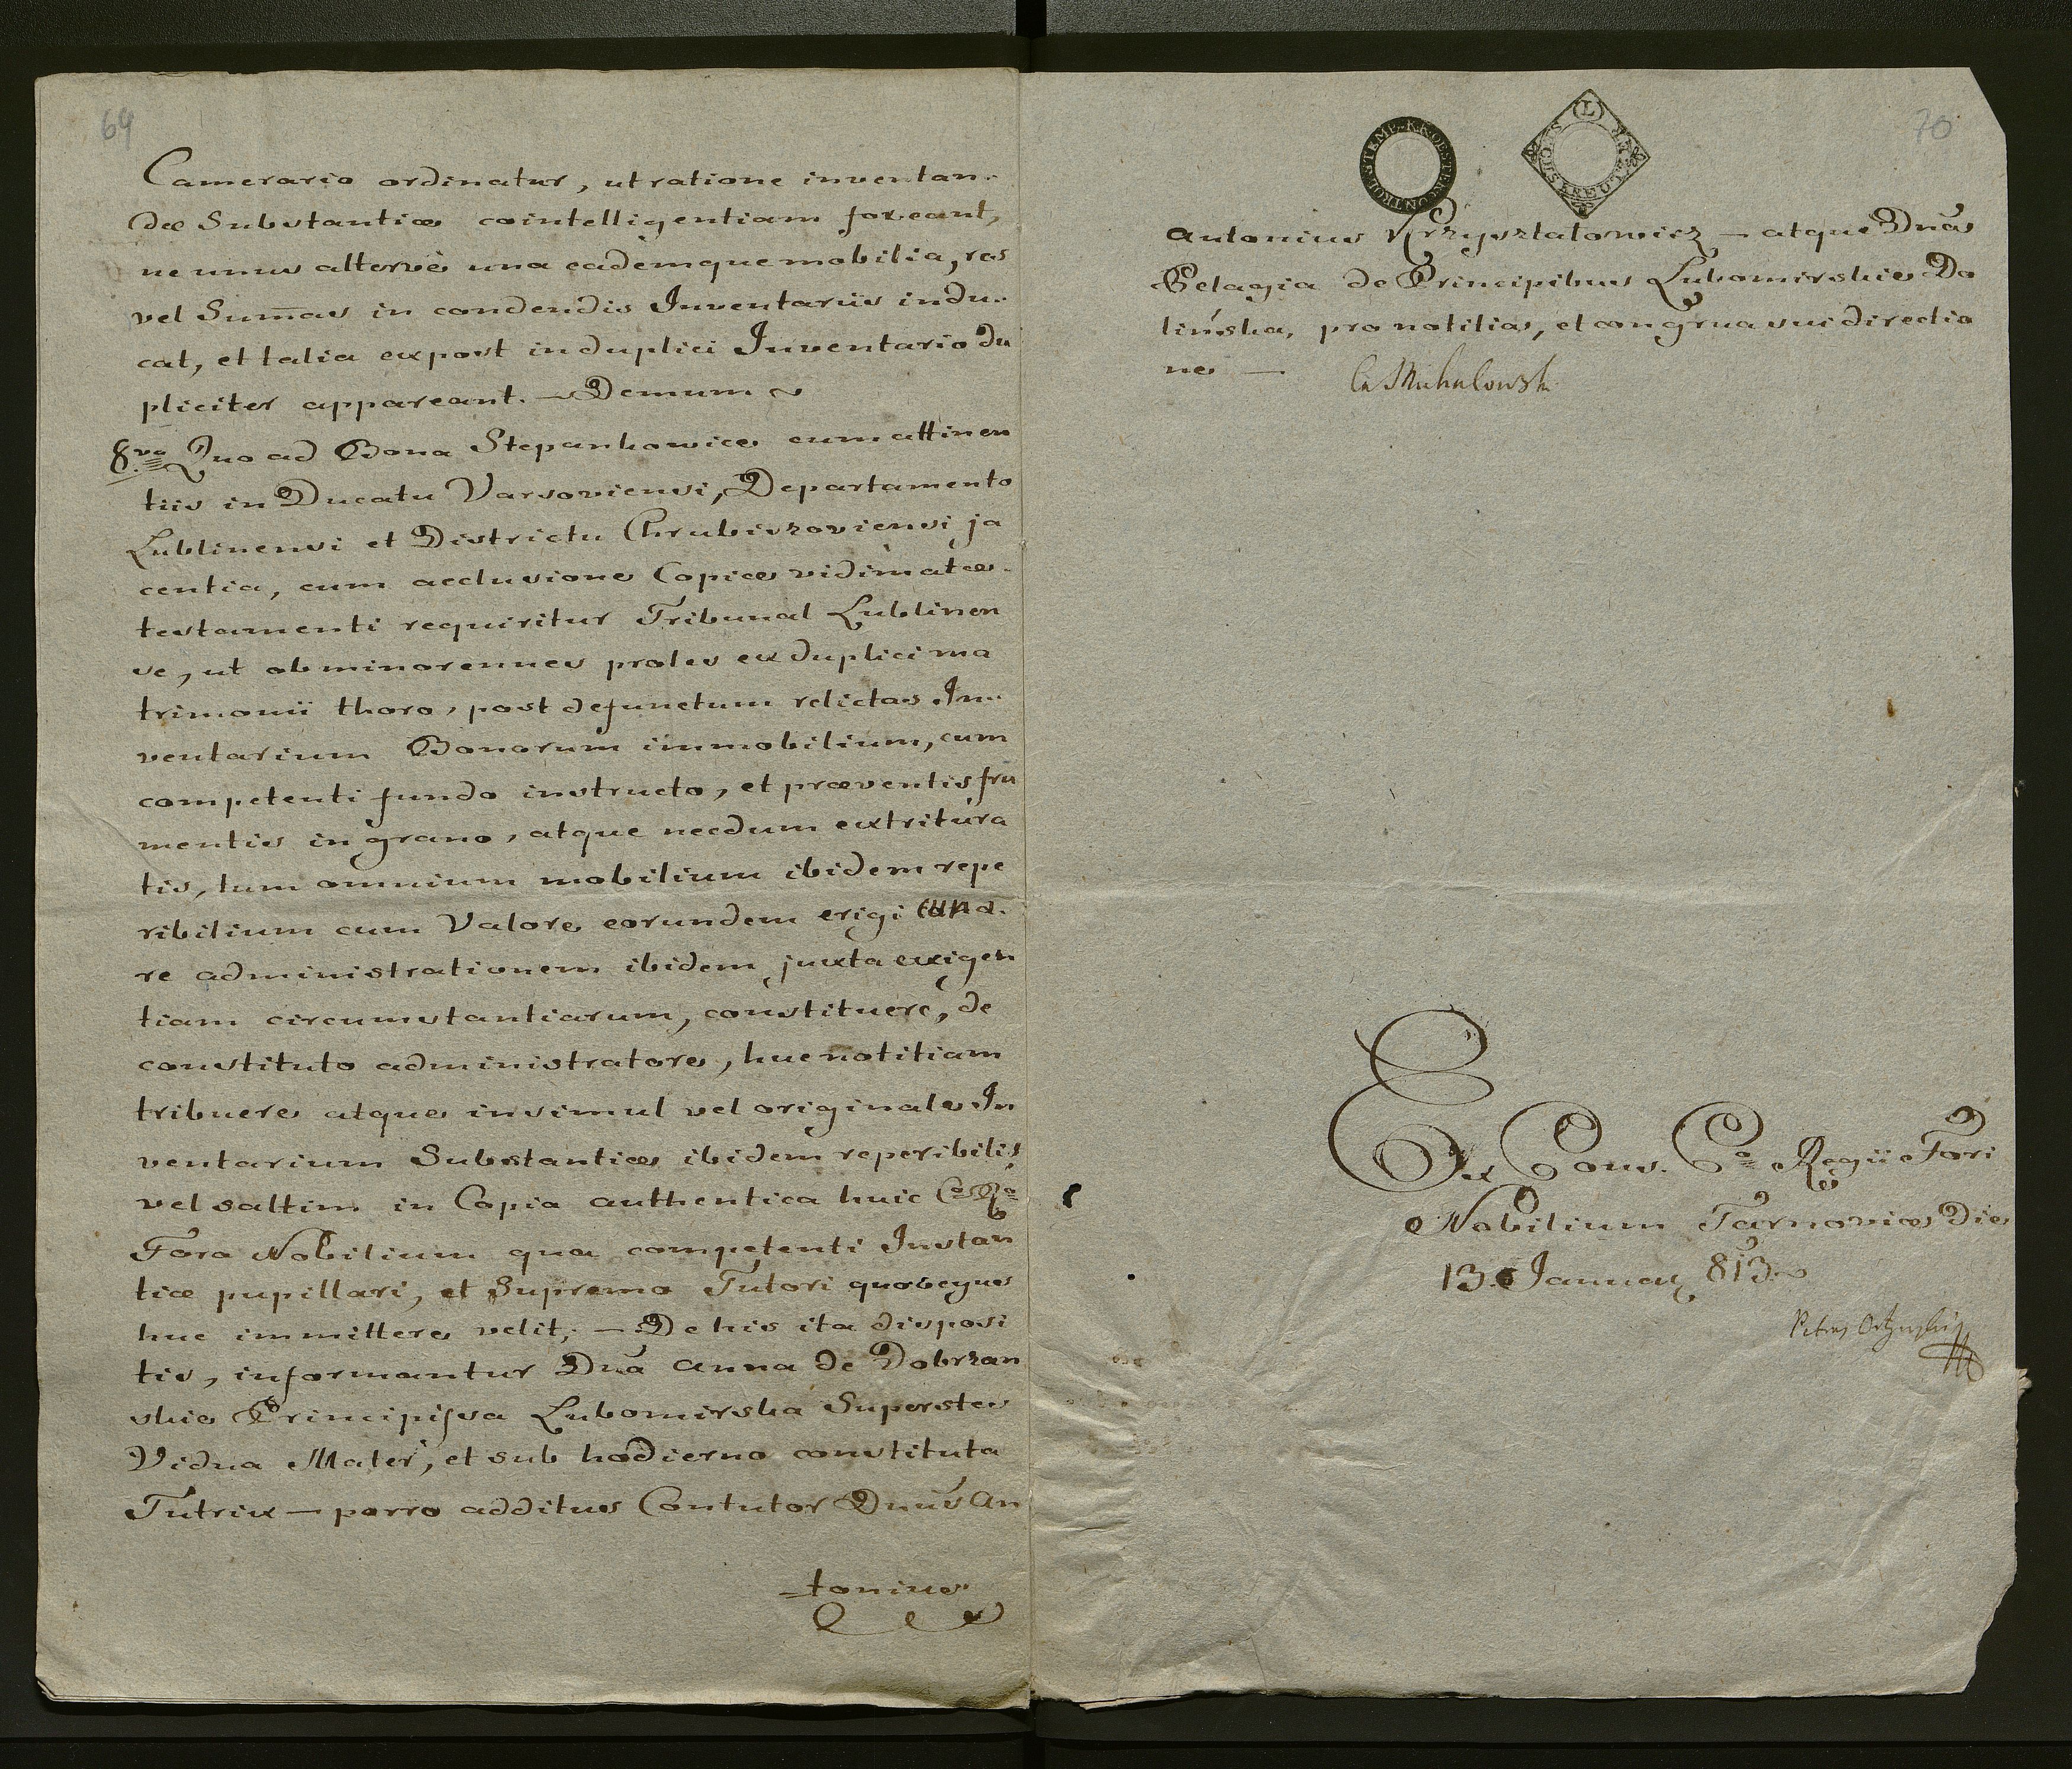 69
Camerario ordinatur, ut ratione inventan-
dæ Substantiæ cointelligentiam foveant,
ne unus altervè una eademque mobilia, res
vel Sum̄as in condendis Inventariis indu-
cat, et talia expost in duplici Inventario du
pliciter appareant. — Demum ~
8vo Quo ad Bona Stepankowice cum attinen
tiis in Ducatu Varsoviensi, Departamento
Lublinensi et Districtu Chrubiszoviensi ja
centia, cum acclusione Copiæ vidimatæ
testamenti requiritur Tribunal Lublinen
se, ut ob minorennes proles ex duplici ma
trimonii thoro, post defunctum relictas In-
ventarium Bonorum immobilium, cum
competenti fundo instructo, et præventis fru
mentis in grano, atque necdum extritura
tis, tum omnium mobilium ibidem repe
ribilium cum Valore eorundem erigi
re administrationem ibidem juxta exigen
tiam circumstantiarum, constituere, de
constituto administratore, huc notitiam
tribuere atque insimul vel originale In
ventarium Substantiæ ibidem reperibilis,
vel saltim in Copia authentica huic Co Ro
Foro Nobilium qua competenti Instan
tiæ pupillari, et Supremo Tutori quoseque
huc immittere velit; — De his ita disposi
tis, informantur Dn̄a Anna de Dobrzan
skie Principissa Lubomirska Superstes
Vidua Mater, et sub hodierno constituta
Tutrix — porro additus Contutor Dnus An
tonius
70
CONTROL STEMP. K. K. OESTERR
(L)
SECHS
Antonius Krzyształowicz — atque Dn̄a
Pelagia de Principibus Lubomirskie Do
lińska, pro notitia, et congrua sui directio
ne —
Ex Cons. Co Regii Fori
Nobilium Tarnoviæ Die
13. Januar 813 ~